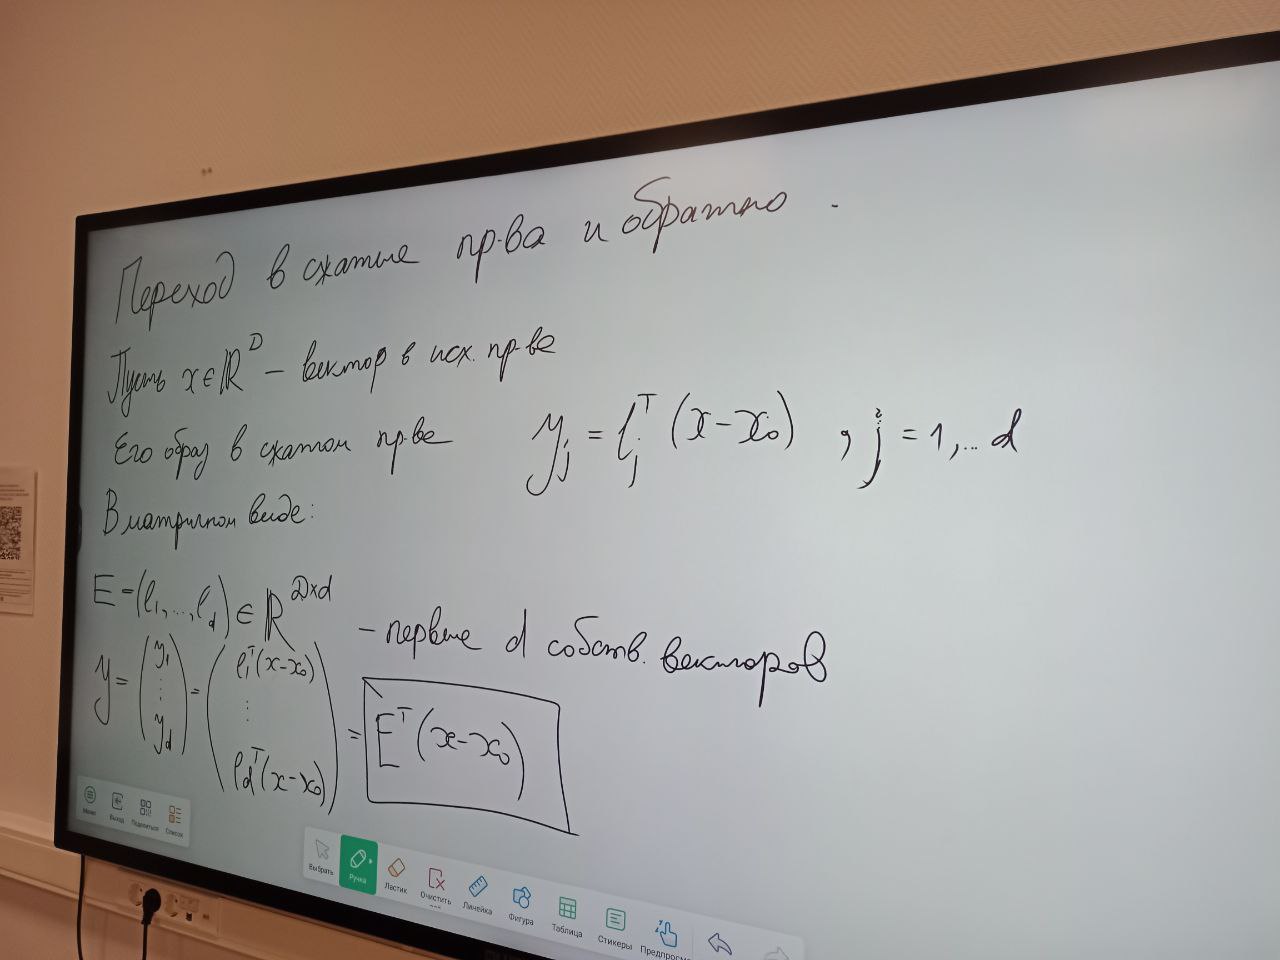 Переход в сжатые пр-ва и обратно.
Пусть x ∈ ℝ^D – вектор в исх. пр-ве
Его образ в сжатом пр-ве y_j = l_j^T (x - x_0), j = 1, ... d
В матричном виде:
E = (l_1, ..., l_d) ∈ ℝ^{D×d} – первые d собств. векторов
y = (y_1 ⋮ y_d) = (l_1^T (x - x_0) ⋮ l_d^T (x - x_0)) = E^T (x - x_0)
Меню Выход Поделиться Список
Выбрать Ручка Ластик Очистить Линейка Фигура Таблица Стикеры